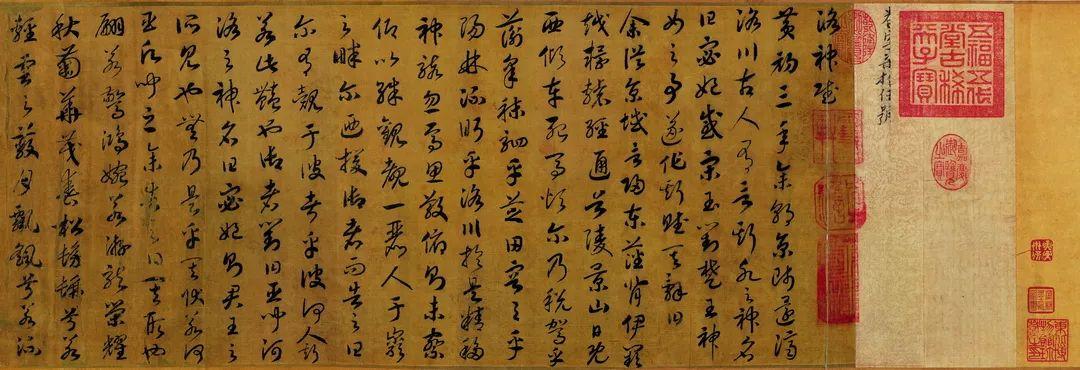 五福五代堂古稀天子寶
嘉慶御覽之寶
洛神賦
黃初三年余朝京師還濟
洛川古人有言斯水之神名
曰宓妃感宋玉對楚王神
女之事遂作斯賦其辭曰
余從京域言歸東藩背伊闕
越轘轅經通谷陵景山日既
西傾車殆馬煩爾乃稅駕乎
蘅皋秣駟乎芝田容與乎
陽林流眄乎洛川於是精移
神駭忽焉思散俯則未察
仰以殊觀覩一麗人于巖
之畔爾迺援御者而告之曰
爾有覿于彼者乎彼何人斯
若此豔也御者對曰臣聞河
洛之神名曰宓妃則君王之
所見也無乃是乎其狀若何
臣願聞之余告之曰其形也
翩若驚鴻婉若游龍榮耀
秋菊華茂春松髣髴兮若
輕雲之蔽月飄飖兮若流